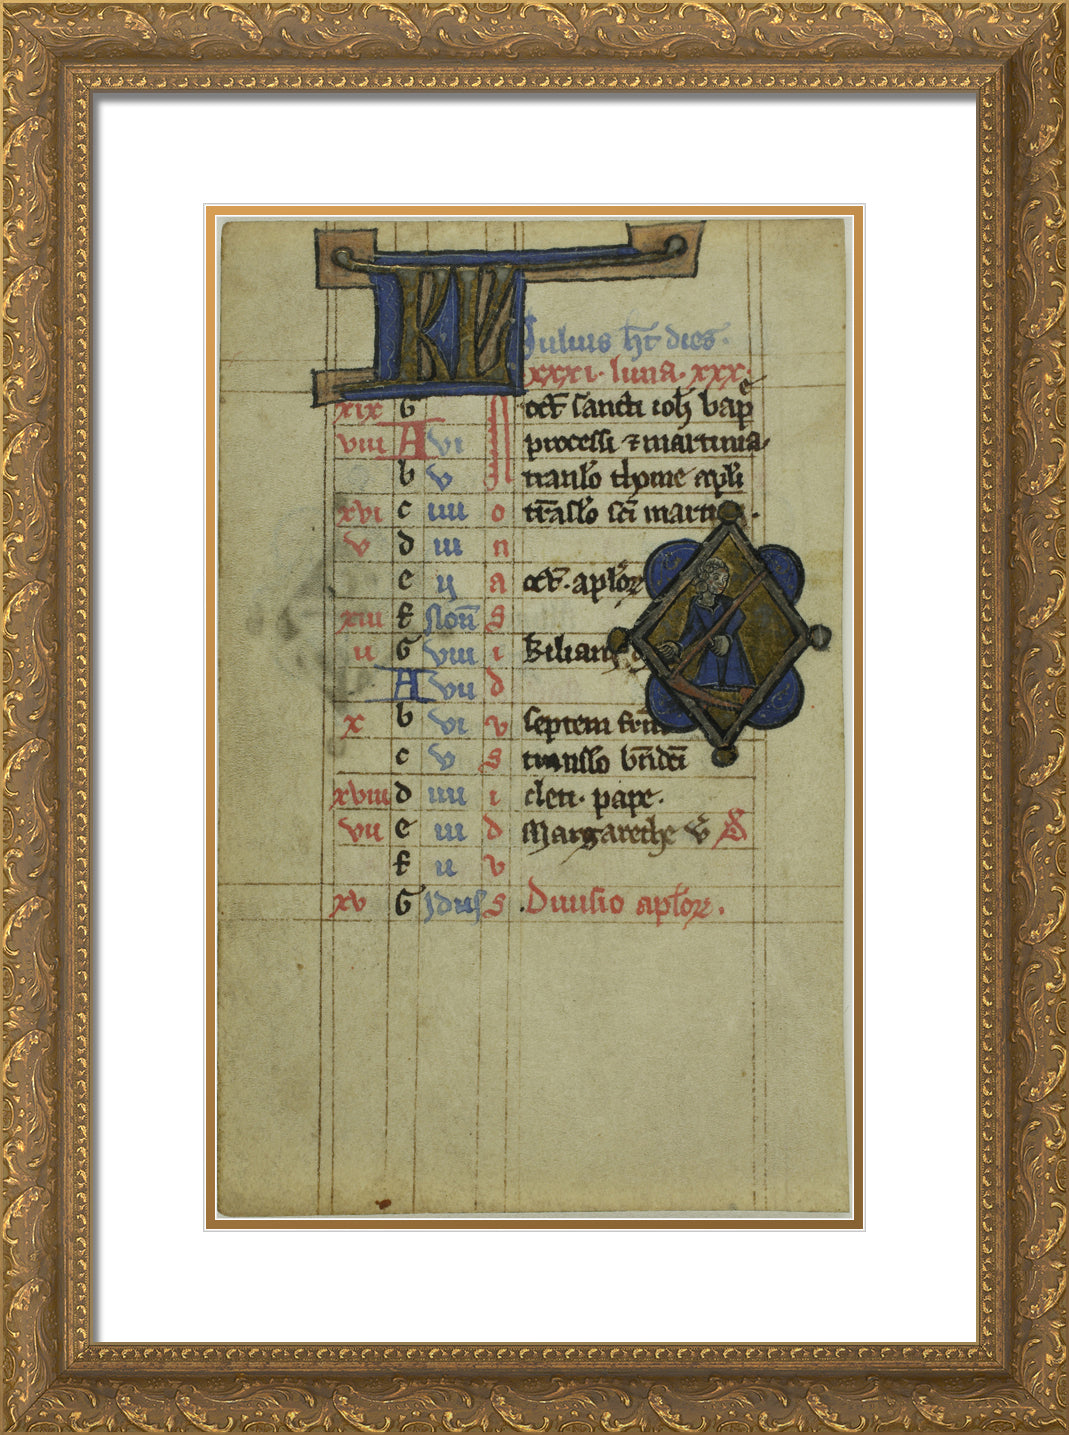 KL Iulius ht dies.
xxxi. luna. xxx.
xix G oct sancti ioh bape
viii A vi N processi & martinia
b v translo thome apli
xvi c iiii o traslo sci martin .
v d iii n
e ii a oct. aplor
xiii f Non s
ii G viii i kilian
A vii d
x b vi u septem frm
c v s translo bndcti
xviii d iiii i cleti. pape.
vii e iii d Margarethe v
f ii u
xv G Idus s .Diuisio aplor.